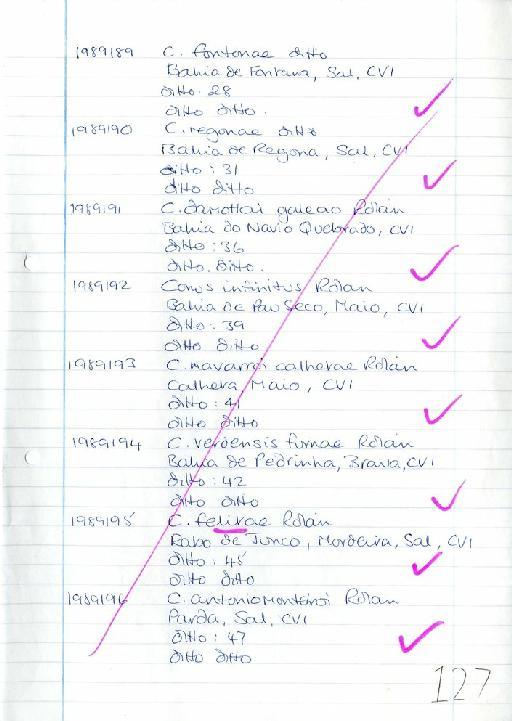 1989189 C. fontonae ditto
Bahia de Fontana, Sal, CVI
ditto: 28
ditto ditto.
1989190 C. regonae ditto
Bahia de Regona, Sal, CVI
ditto: 31
ditto ditto
1989191 C. damottai galeao Rolán
Bahia do Navio Quebrado, CVI
ditto: 36
ditto. ditto.
1989192 Conus infinitus Rolan
Bahia de Pau Seco, Maio, CVI
ditto: 39
ditto ditto
1989193 C. navarroi calhetae Rolán
Calheta, Maio, CVI
ditto: 41
ditto ditto
1989194 C. verdensis furnae Rolán
Bahia de Pedrinha, Brava, CVI
ditto: 42
ditto ditto
1989195 C. felitae Rolán
Rabo de Junco, Mordeira, Sal, CVI
ditto: 45
ditto ditto
1989196 C. antoniomonteiroi Rolan
Parda, Sal, CVI
ditto: 47
ditto ditto
127